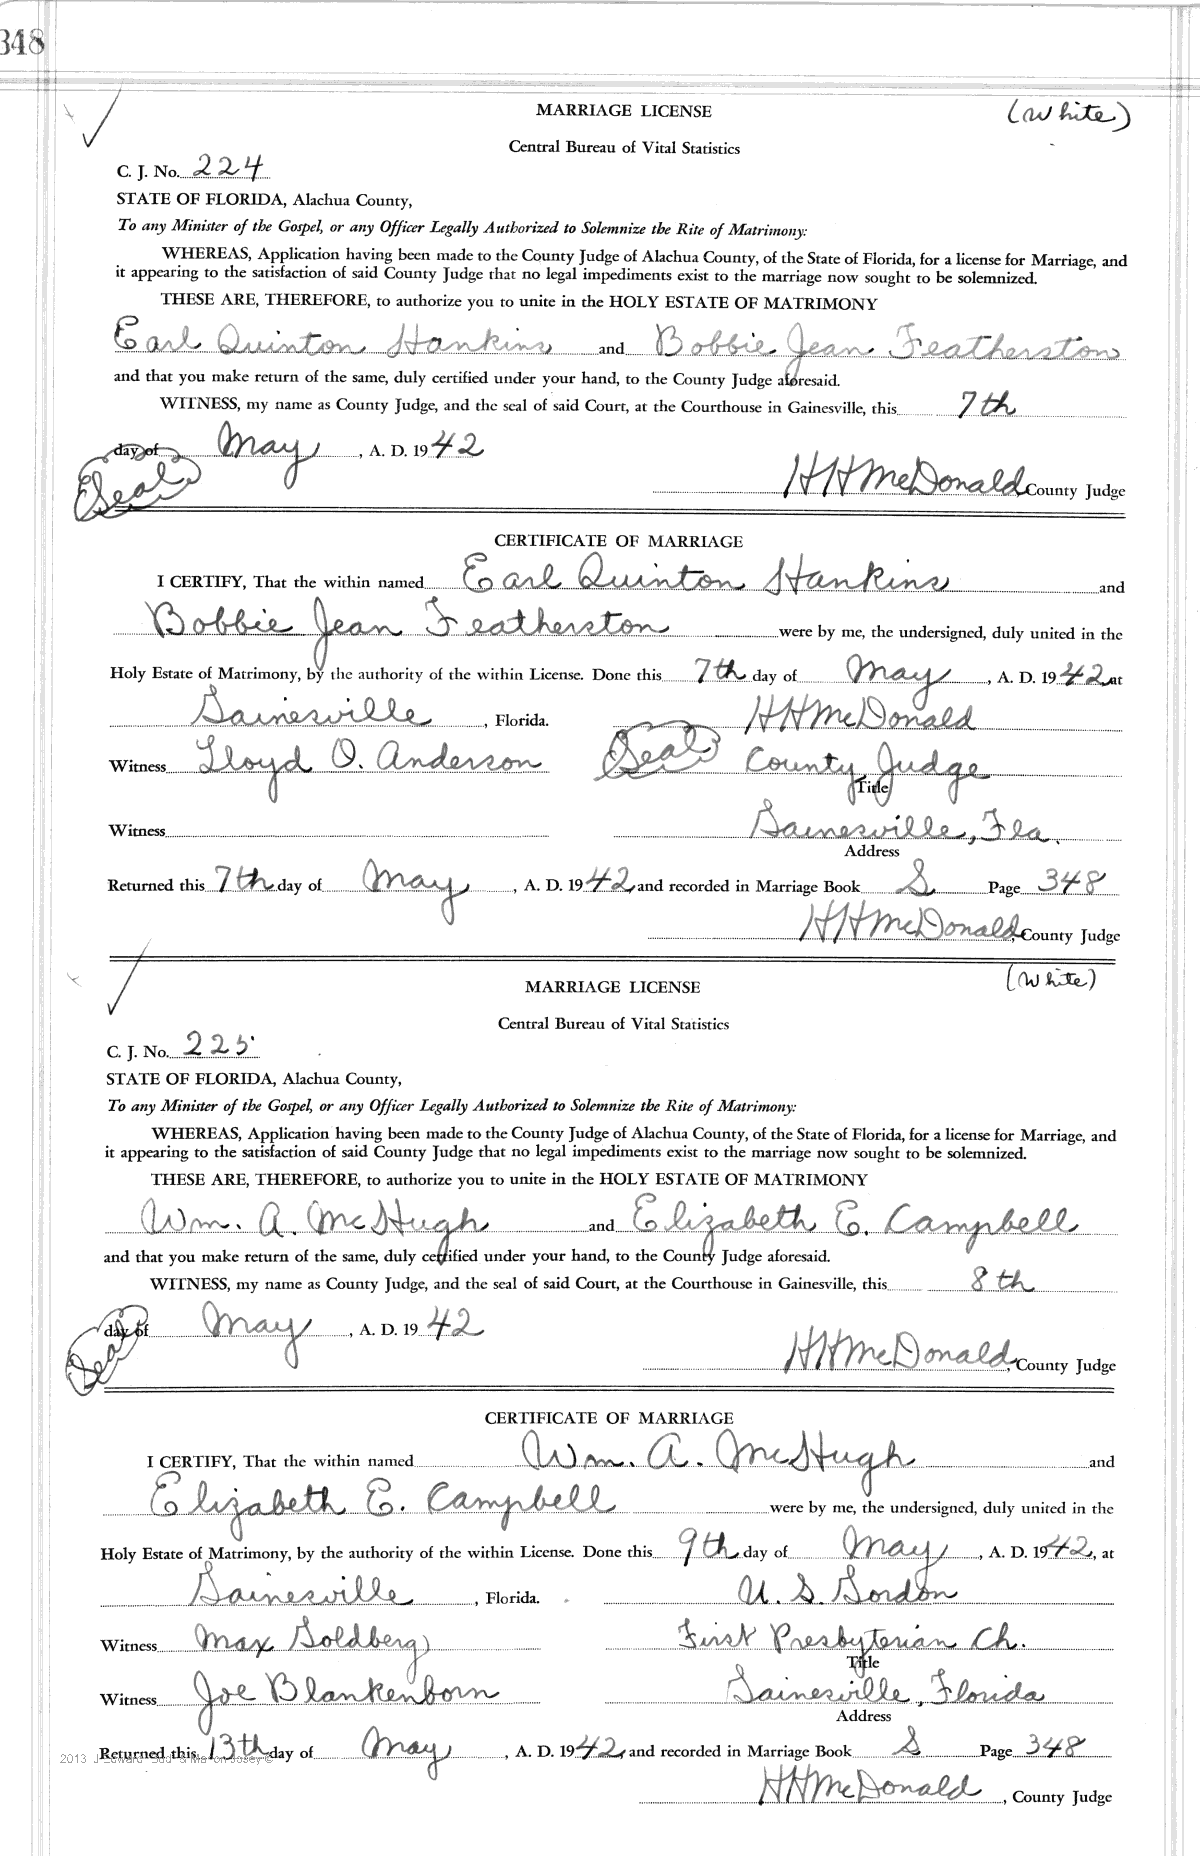 348
MARRIAGE LICENSE (White)
Central Bureau of Vital Statistics
C. J. No. 224
STATE OF FLORIDA, Alachua County,
To any Minister of the Gospel, or any Officer Legally Authorized to Solemnize the Rite of Matrimony:
WHEREAS, Application having been made to the County Judge of Alachua County, of the State of Florida, for a license for Marriage, and
it appearing to the satisfaction of said County Judge that no legal impediments exist to the marriage now sought to be solemnized.
THESE ARE, THEREFORE, to authorize you to unite in the HOLY ESTATE OF MATRIMONY
Earl Quinton Hankins and Bobbie Jean Featherston
and that you make return of the same, duly certified under your hand, to the County Judge aforesaid.
WITNESS, my name as County Judge, and the seal of said Court, at the Courthouse in Gainesville, this 7th
day of May, A. D. 1942
(Seal) HHMcDonald County Judge
CERTIFICATE OF MARRIAGE
I CERTIFY, That the within named Earl Quinton Hankins and
Bobbie Jean Featherston were by me, the undersigned, duly united in the
Holy Estate of Matrimony, by the authority of the within License. Done this 7th day of May, A. D. 1942, at
Gainesville, Florida. HHMcDonald
Witness Lloyd O. Anderson (Seal) County Judge
Title
Witness Gainesville, Fla.
Address
Returned this 7th day of May, A. D. 1942, and recorded in Marriage Book S Page 348
HHMcDonald, County Judge
MARRIAGE LICENSE (White)
Central Bureau of Vital Statistics
C. J. No. 225
STATE OF FLORIDA, Alachua County,
To any Minister of the Gospel, or any Officer Legally Authorized to Solemnize the Rite of Matrimony:
WHEREAS, Application having been made to the County Judge of Alachua County, of the State of Florida, for a license for Marriage, and
it appearing to the satisfaction of said County Judge that no legal impediments exist to the marriage now sought to be solemnized.
THESE ARE, THEREFORE, to authorize you to unite in the HOLY ESTATE OF MATRIMONY
Wm. A. McHugh and Elizabeth E. Campbell
and that you make return of the same, duly certified under your hand, to the County Judge aforesaid.
WITNESS, my name as County Judge, and the seal of said Court, at the Courthouse in Gainesville, this 8th
day of May, A. D. 1942
(Seal) HHMcDonald, County Judge
CERTIFICATE OF MARRIAGE
I CERTIFY, That the within named Wm. A. McHugh and
Elizabeth E. Campbell were by me, the undersigned, duly united in the
Holy Estate of Matrimony, by the authority of the within License. Done this 9th day of May, A. D. 1942, at
Gainesville, Florida. U. S. Gordon
Witness Max Goldberg First Presbyterian Ch.
Title
Witness Joe Blankenborn Gainesville, Florida
Address
Returned this 13th day of May, A. D. 1942, and recorded in Marriage Book S Page 348
2013
HHMcDonald, County Judge